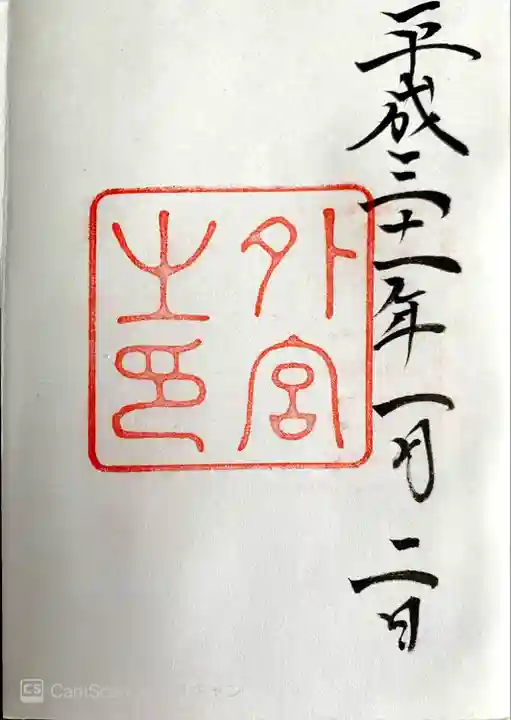 平成三十一年一月二日
外宮
之印
CS CamSc